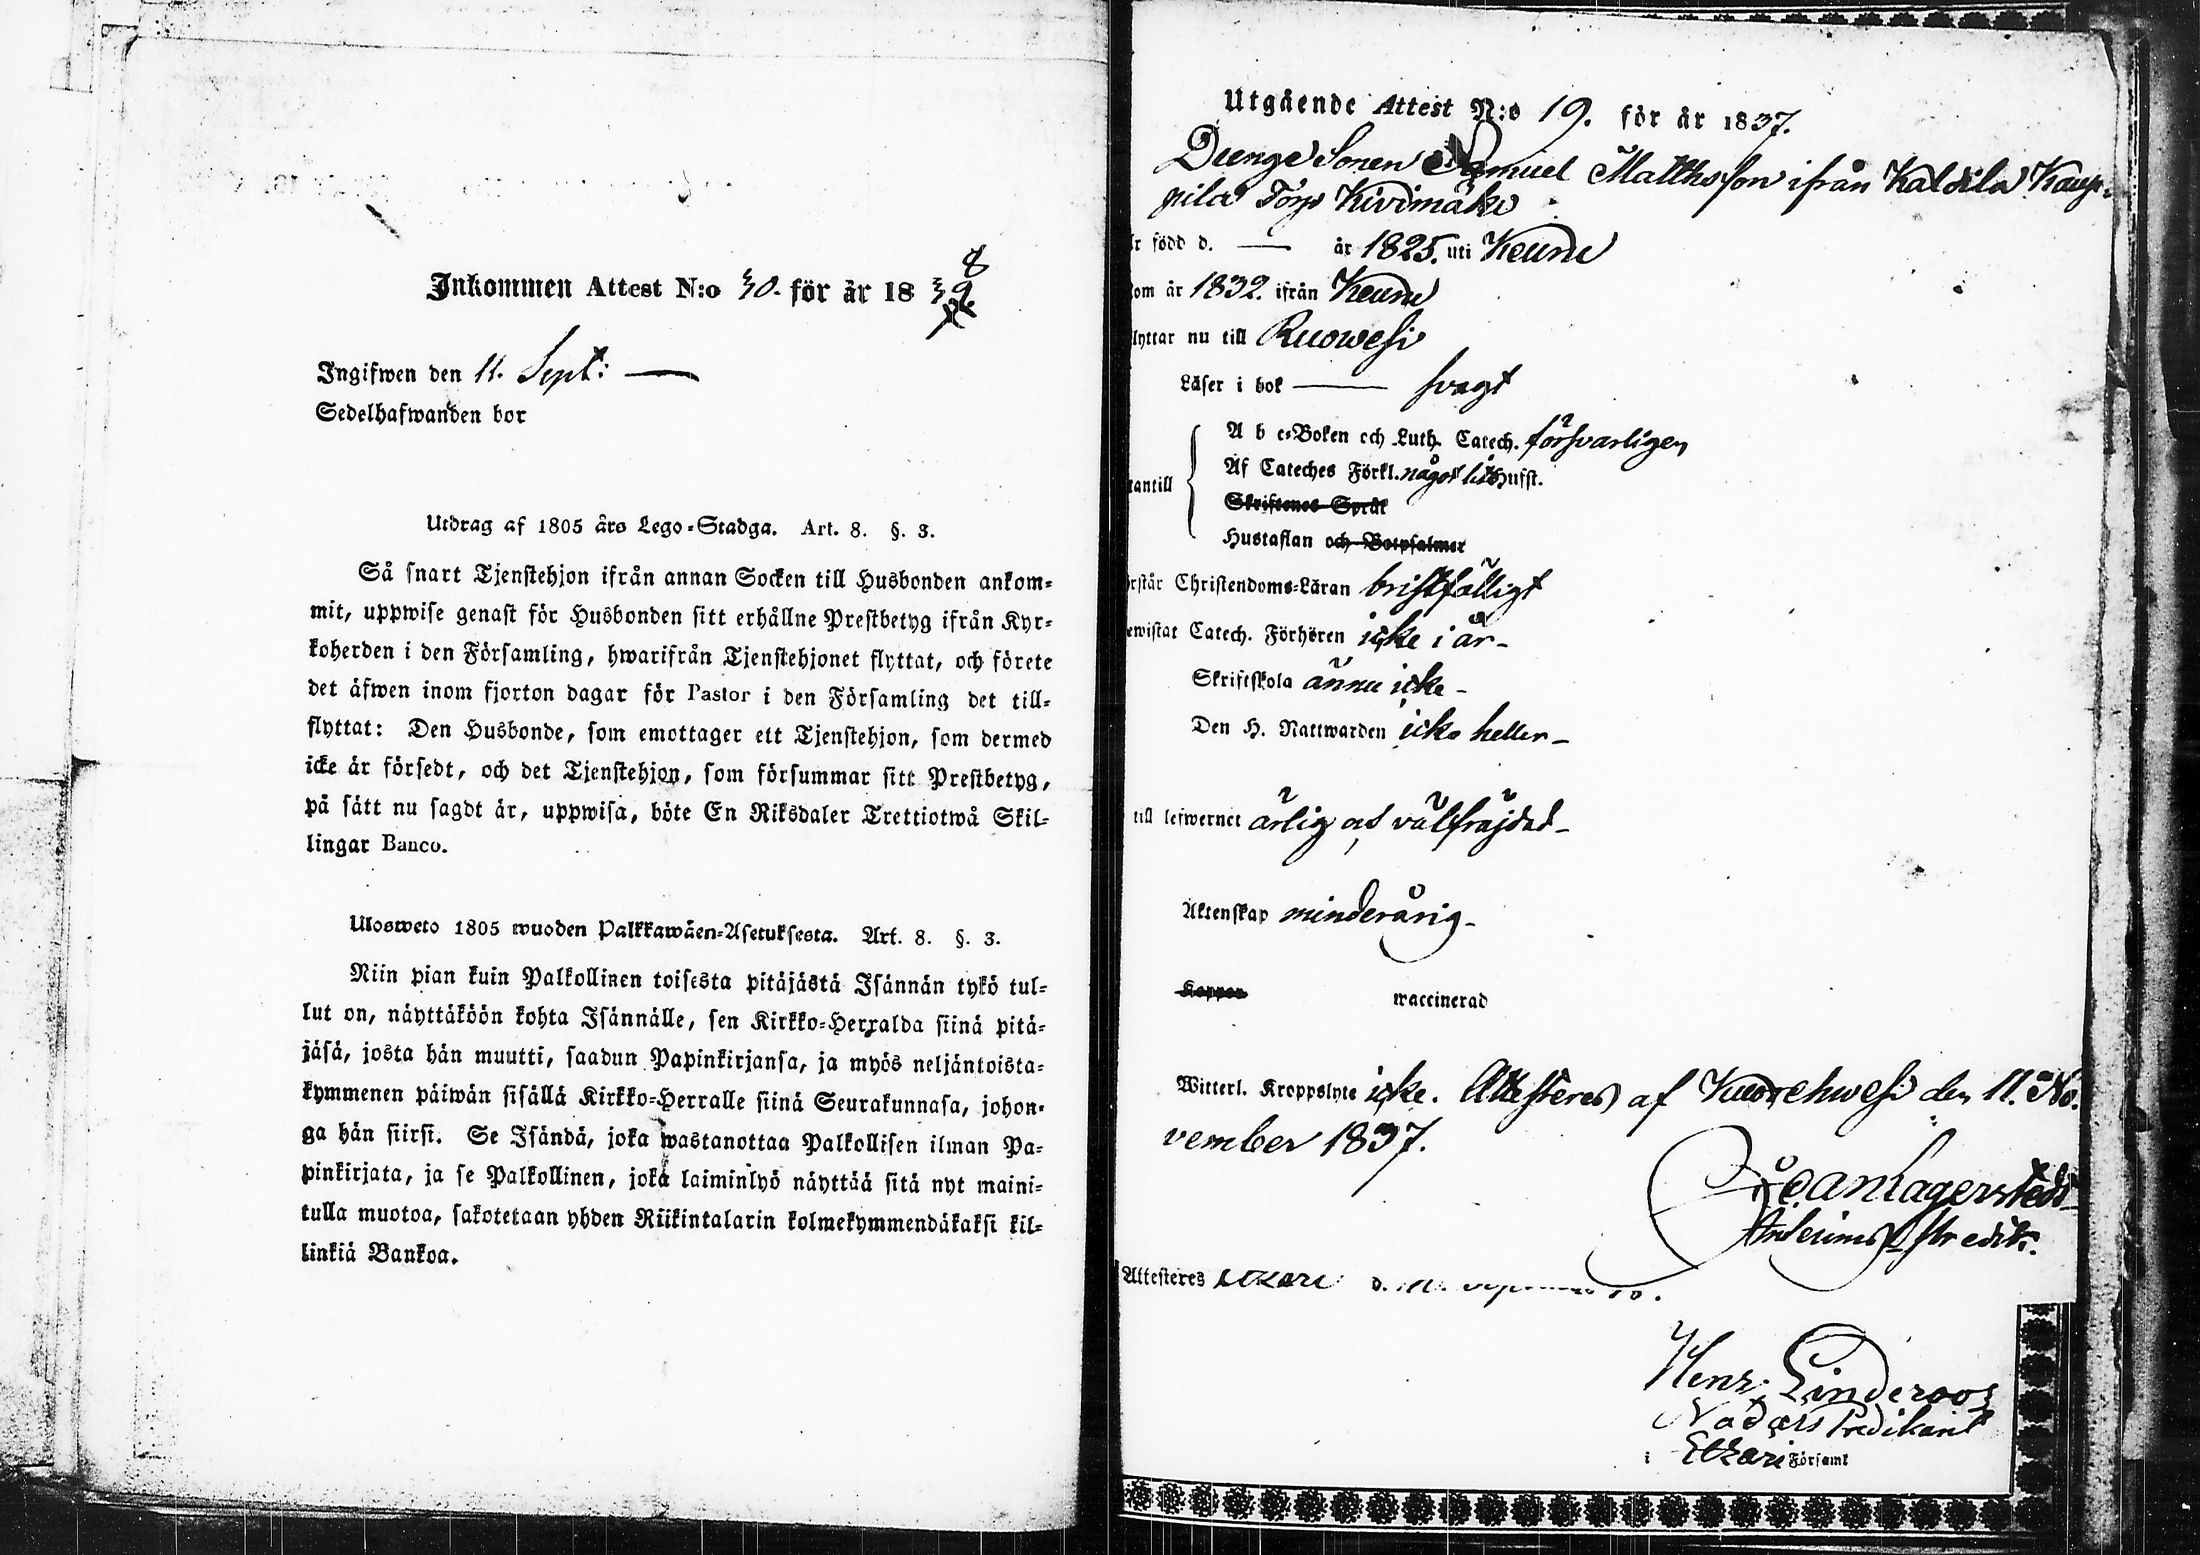 Inkommen Attest N:o 30. för år 18 38
Ingifwen den 11. Sept:
Sedelhafwanden bor
Utdrag af 1805 års Lego-Stadga. Art. 8. §. 3.
Så snart Tjenstehjon ifrån annan Socken till Husbonden ankom-
mit, uppwise genast för Husbonden sitt erhållne Prestbetyg ifrån Kyr-
koherden i den Församling, hwarifrån Tjenstehjonet flyttat, och förete
det äfwen inom fjorton dagar för Pastor i den Församling det till-
flyttat: Den Husbonde, som emottager ett Tjenstehjon, som dermed
icke är försedt, och det Tjenstehjon, som försummar sitt Prestbetyg,
på sätt nu sagdt är, uppwisa, böte En Riksdaler Trettiotwå Skil-
lingar Banco.
Ulosweto 1805 wuoden Palkkawäen-Asetuksesta. Art. 8. §. 3.
Niin pian kuin Palkollinen toisesta pitäjästä Isännän tykö tul-
lut on, näyttäköön kohta Isännälle, sen Kirkko-Herralda siinä pitä-
jäsä, josta hän muutti, saadun Papinkirjansa, ja myös neljäntoista-
kymmenen päiwän sisällä Kirkko-Herralle siinä Seurakunnasa, johon-
ga hän siirsi. Se Isändä, joka wastanottaa Palkollisen ilman Pa-
pinkirjata, ja se Palkollinen, joka laiminlyö näyttää sitä nyt maini-
tulla muotoa, sakotetaan yhden Riikintalarin kolmekymmendäkaksi kil-
linkiä Bankoa.
Utgående Attest N:o 19. för år 1837.
Drenge Sonen Samuel Matthsson ifrån Kaldila Kaup-
pila Torp Kivimäki
är född d. — år 1825. uti Keuru
kom år 1832. ifrån Keuru
flyttar nu till Ruowesi
Läser i bok — svagt
A b c-Boken och Luth. Catech. försvarligen
Af Cateches Förkl. något litet
utantill
Skriftenes Språk
Hustaflan och Botpsalmer
förstår Christendoms-Läran bristfälligt
bewistat Catech. Förhören icke i år-
Skriftskola ännu icke-
Den H. Nattwarden icke heller-
till lefwernet ärlig och välfräjdad-
Äktenskap minderårig-
Koppor waccinerad
Witterl. Kroppslyte icke. Attesteres af Kuorehwesi den 11. No-
vember 1837.
Lagerstedt
Attesteres Etzeri d.
Henr. Linderoos
Nådårs Predikant
i Etzeri Församl